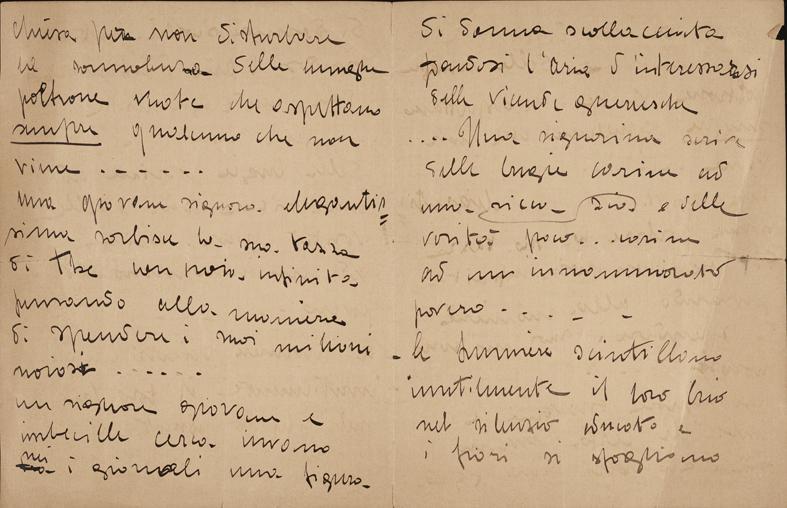 chiusa per non disturbare
la sonnolenza delle
poltrone vuote che aspettano
sempre qualcuno che non
viene - - - - - -
una giovane signora elegantis=
sima sorbisce la sua tazza
di The con noia infinita
pensando alla maniera
di spendere i suoi milioni
noiosi - - - - - -
un signore giovane e
imbecille cerca invano
nei giornali una figura
di donna scollacciata
dandosi l'aria d'interessarsi
delle vicende guerresche
.... Una signorina scrive
delle bugie carine ad
uno zio e delle
verità poco... carine
ad un innamorato
povero - - - -
le lumiere scintillano
inutilmente il loro brio
nel silenzio educato e
i fiori si sfogliano